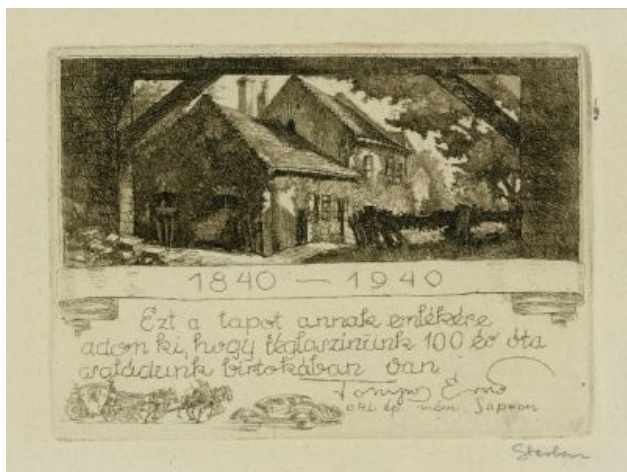 1840 — 1940
Ezt a lapot annak emlékére
adom ki, hogy téglaszinünk 100 év óta
családunk birtokában van
Ernő
okl. ép. mérn. Sopron